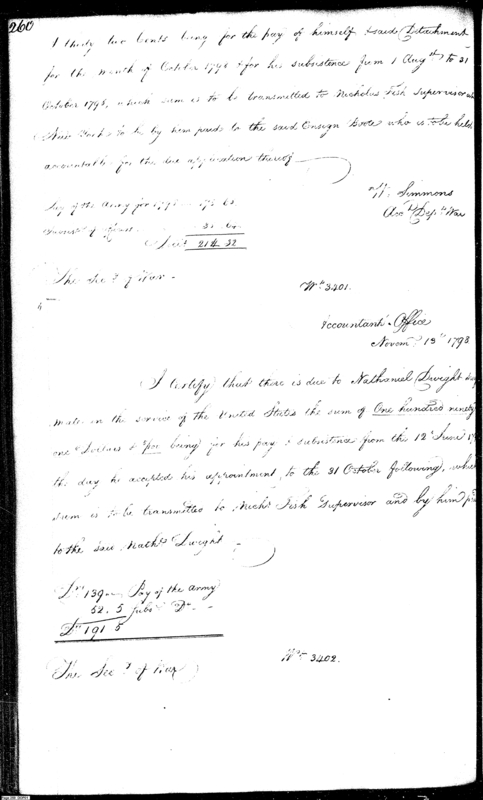 260
& thirty two Cents being for the pay of himself & said Detachment
for the month of October 1798 & for his subsistence from 1 Augt to 31
October 1798, which sum is to be transmitted to Nicholas Fish Supervisor
New York to be by him paid to the said Ensign who is to be held
accountable for the due application thereof
Wm Simmons
Acct Dept War
Pay of the Army for
31. 64
214 32
The Secy of War
No 3401.
Accountant's Office
Novemr 13th 1798
I Certify that there is due to Nathaniel Dwight
mate in the service of the United States the sum of One hundred ninety
one Dollars & 5/100 being for his pay & subsistence from the 12 June
the day he accepted his appointment, to the 31 October following, which
sum is to be transmitted to Nichs Fish Supervisor and by him
to the said Nathl Dwight
Drs 139 Pay of the Army
52. 5 Subs Do
Ds 191 5
The Secy of War
No 3402.